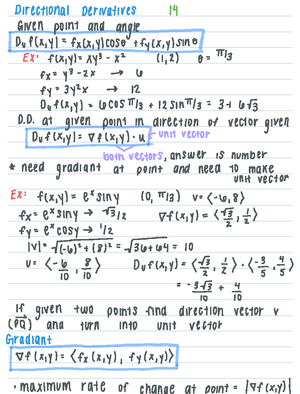 Directional Derivatives 14
Given point and angle
Duf(x,y) = fx(x,y)cosθ + fy(x,y)sinθ
EX: f(x,y) = xy³ - x² (1,2) θ = π/3
fx = y³ - 2x → 6
fy = 3y²x → 12
Duf(x,y) = 6cos π/3 + 12sin π/3 = 3+6√3
D.D. at given point in direction of vector given
Duf(x,y) = ∇f(x,y) · u - unit vector
both vectors, answer is number
* need gradient at point and need to make unit vector
EX: f(x,y) = eˣ siny (0, π/3) v = ⟨-6,8⟩
fx = eˣ siny → √3/2 ∇f(x,y) = ⟨√3/2, 1/2⟩
fy = eˣ cosy → 1/2
|v| = √(-6)² + (8)² = √36+64 = 10
u = ⟨-6/10, 8/10⟩ Duf(x,y) = ⟨√3/2, 1/2⟩ · ⟨-3/5, 4/5⟩
= -3√3/10 + 4/10
If given two points find direction vector v
(PQ) and turn into unit vector
Gradient
∇f(x,y) = ⟨fx(x,y), fy(x,y)⟩
• maximum rate of change at point = |∇f(x,y)|